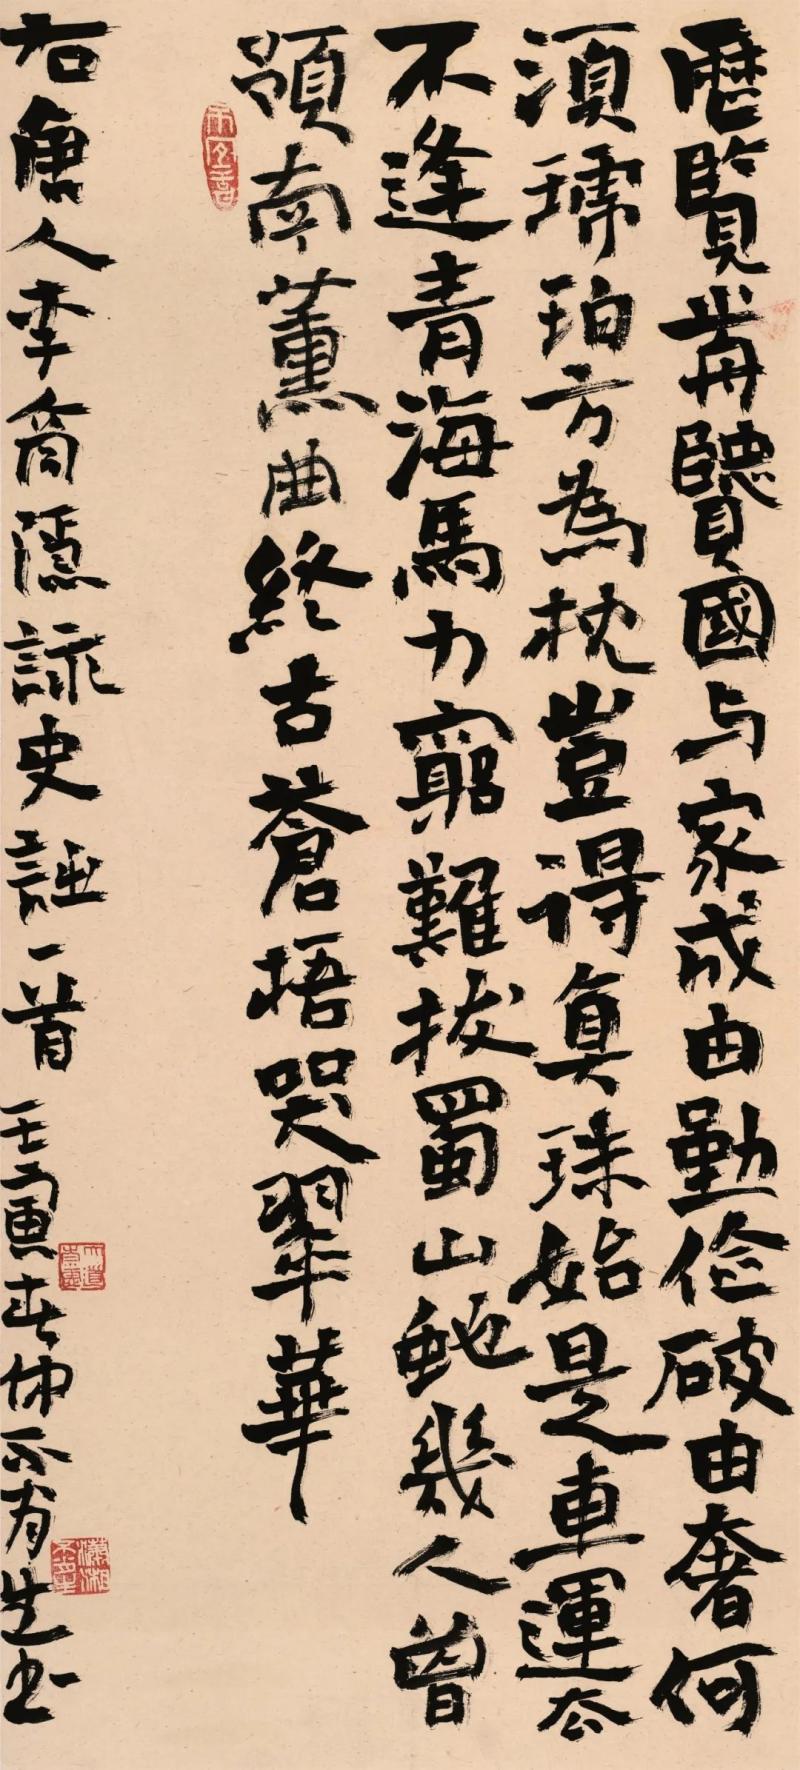 歷覽歬賢國与家成由勤俭破由奢何
須琥珀方為枕豈得真珠始是車運去
不逢青海馬力窮難拔蜀山虵幾人曾
預南薰曲終古蒼梧哭翠華
右唐人李商隱詠史詩一首 壬寅春仲不肖生书
瀟湘不肖生